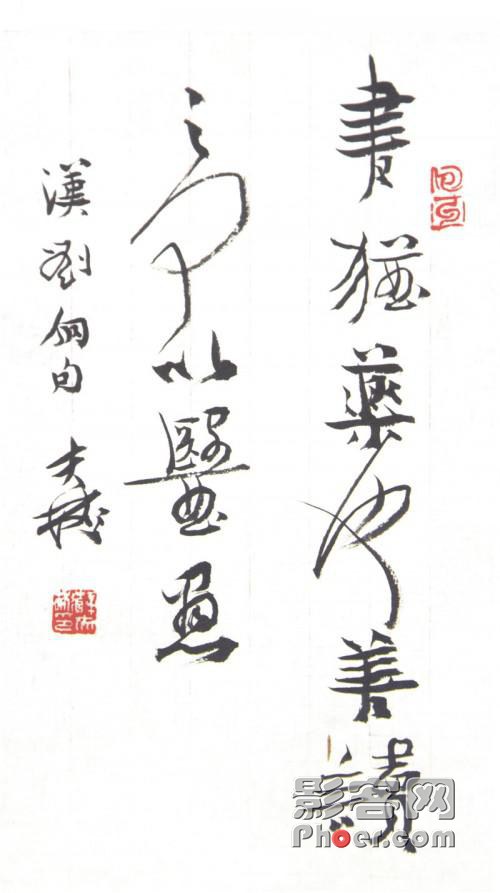 書猶藥也善讀
之可以醫愚
漢劉向句
影客网
Phoer.com